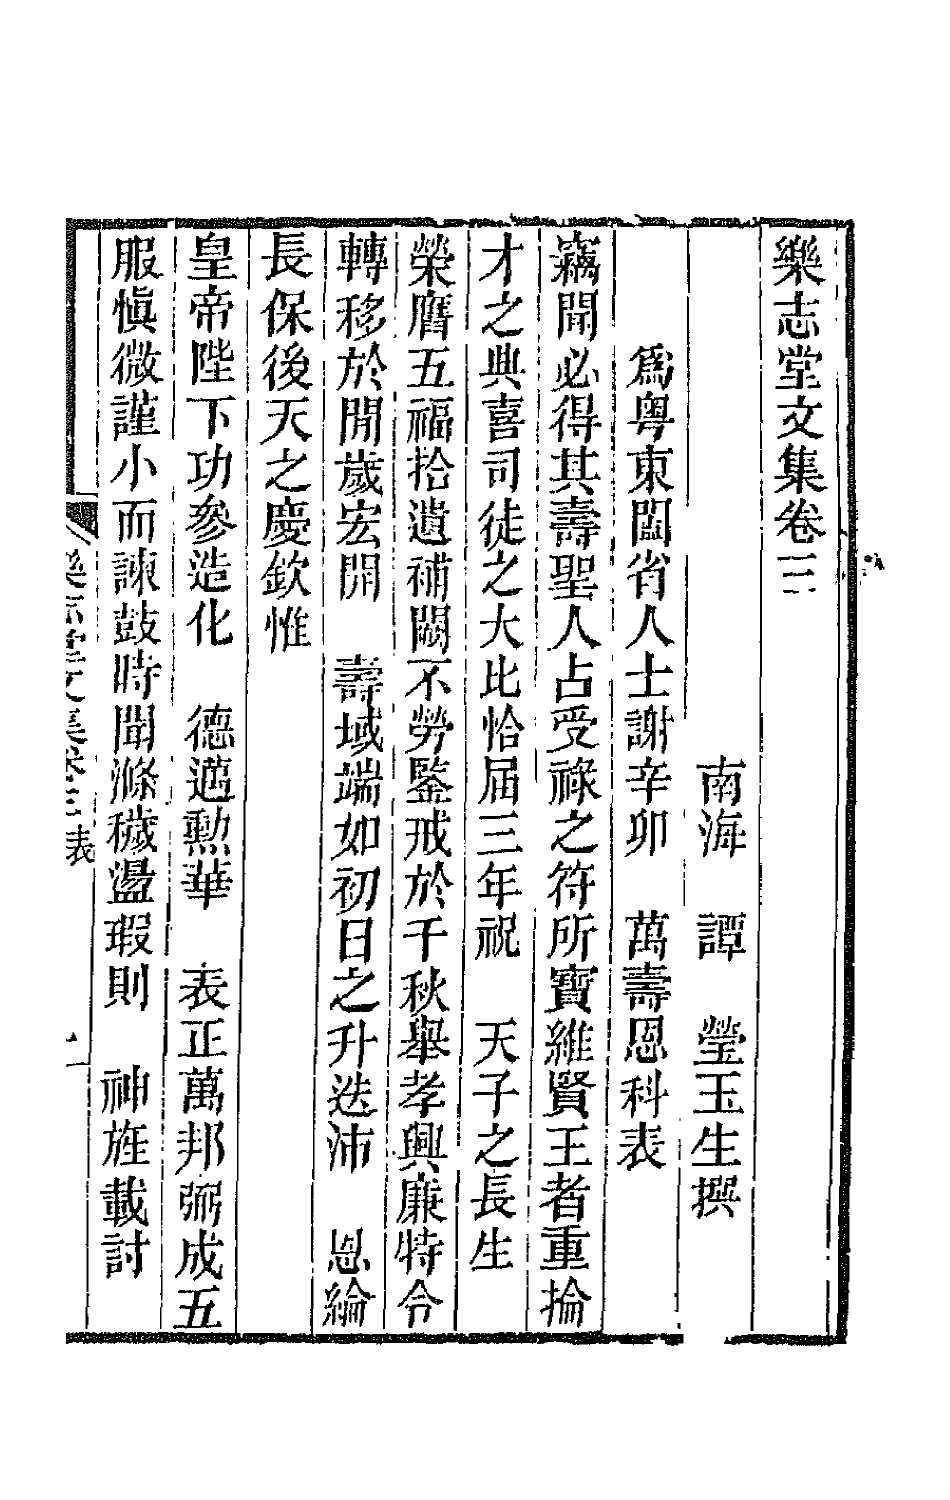 樂志堂文集卷三
南海 譚 瑩玉生撰
爲粤東闔省人士謝辛卯 萬壽恩科表
竊聞必得其壽聖人占受祿之符所寶維賢王者重掄
才之典喜司徒之大比恰屆三年祝 天子之長生
榮膺五福拾遺補闕不勞鑒戒於千秋舉孝興廉特令
轉移於閒歲宏開 壽域端如初日之升迭沛 恩綸
長保後天之慶欽惟
皇帝陛下功參造化 德邁勳華 表正萬邦弼成五
服愼微謹小而諫鼓時聞滌穢盪瑕則 神旌載討
樂志堂文集卷三 表 一